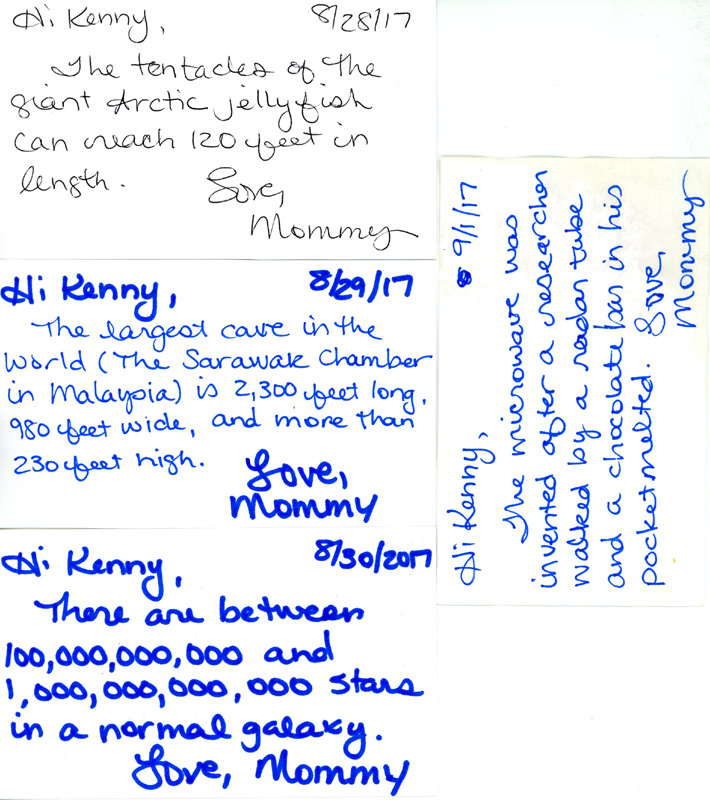 Hi Kenny, 8/28/17
The tentacles of the
giant Arctic jellyfish
can reach 120 feet in
length. Love,
Mommy
Hi Kenny, 8/29/17
The largest cave in the
world (The Sarawak Chamber
in Malaysia) is 2,300 feet long,
980 feet wide, and more than
230 feet high.
Love,
Mommy
Hi Kenny, 8/30/2017
There are between
100,000,000,000 and
1,000,000,000,000 stars
in a normal galaxy.
Love, Mommy
Hi Kenny, 9/1/17
The microwave was
invented after a researcher
walked by a radar tube
and a chocolate bar in his
pocket melted. Love,
Mommy